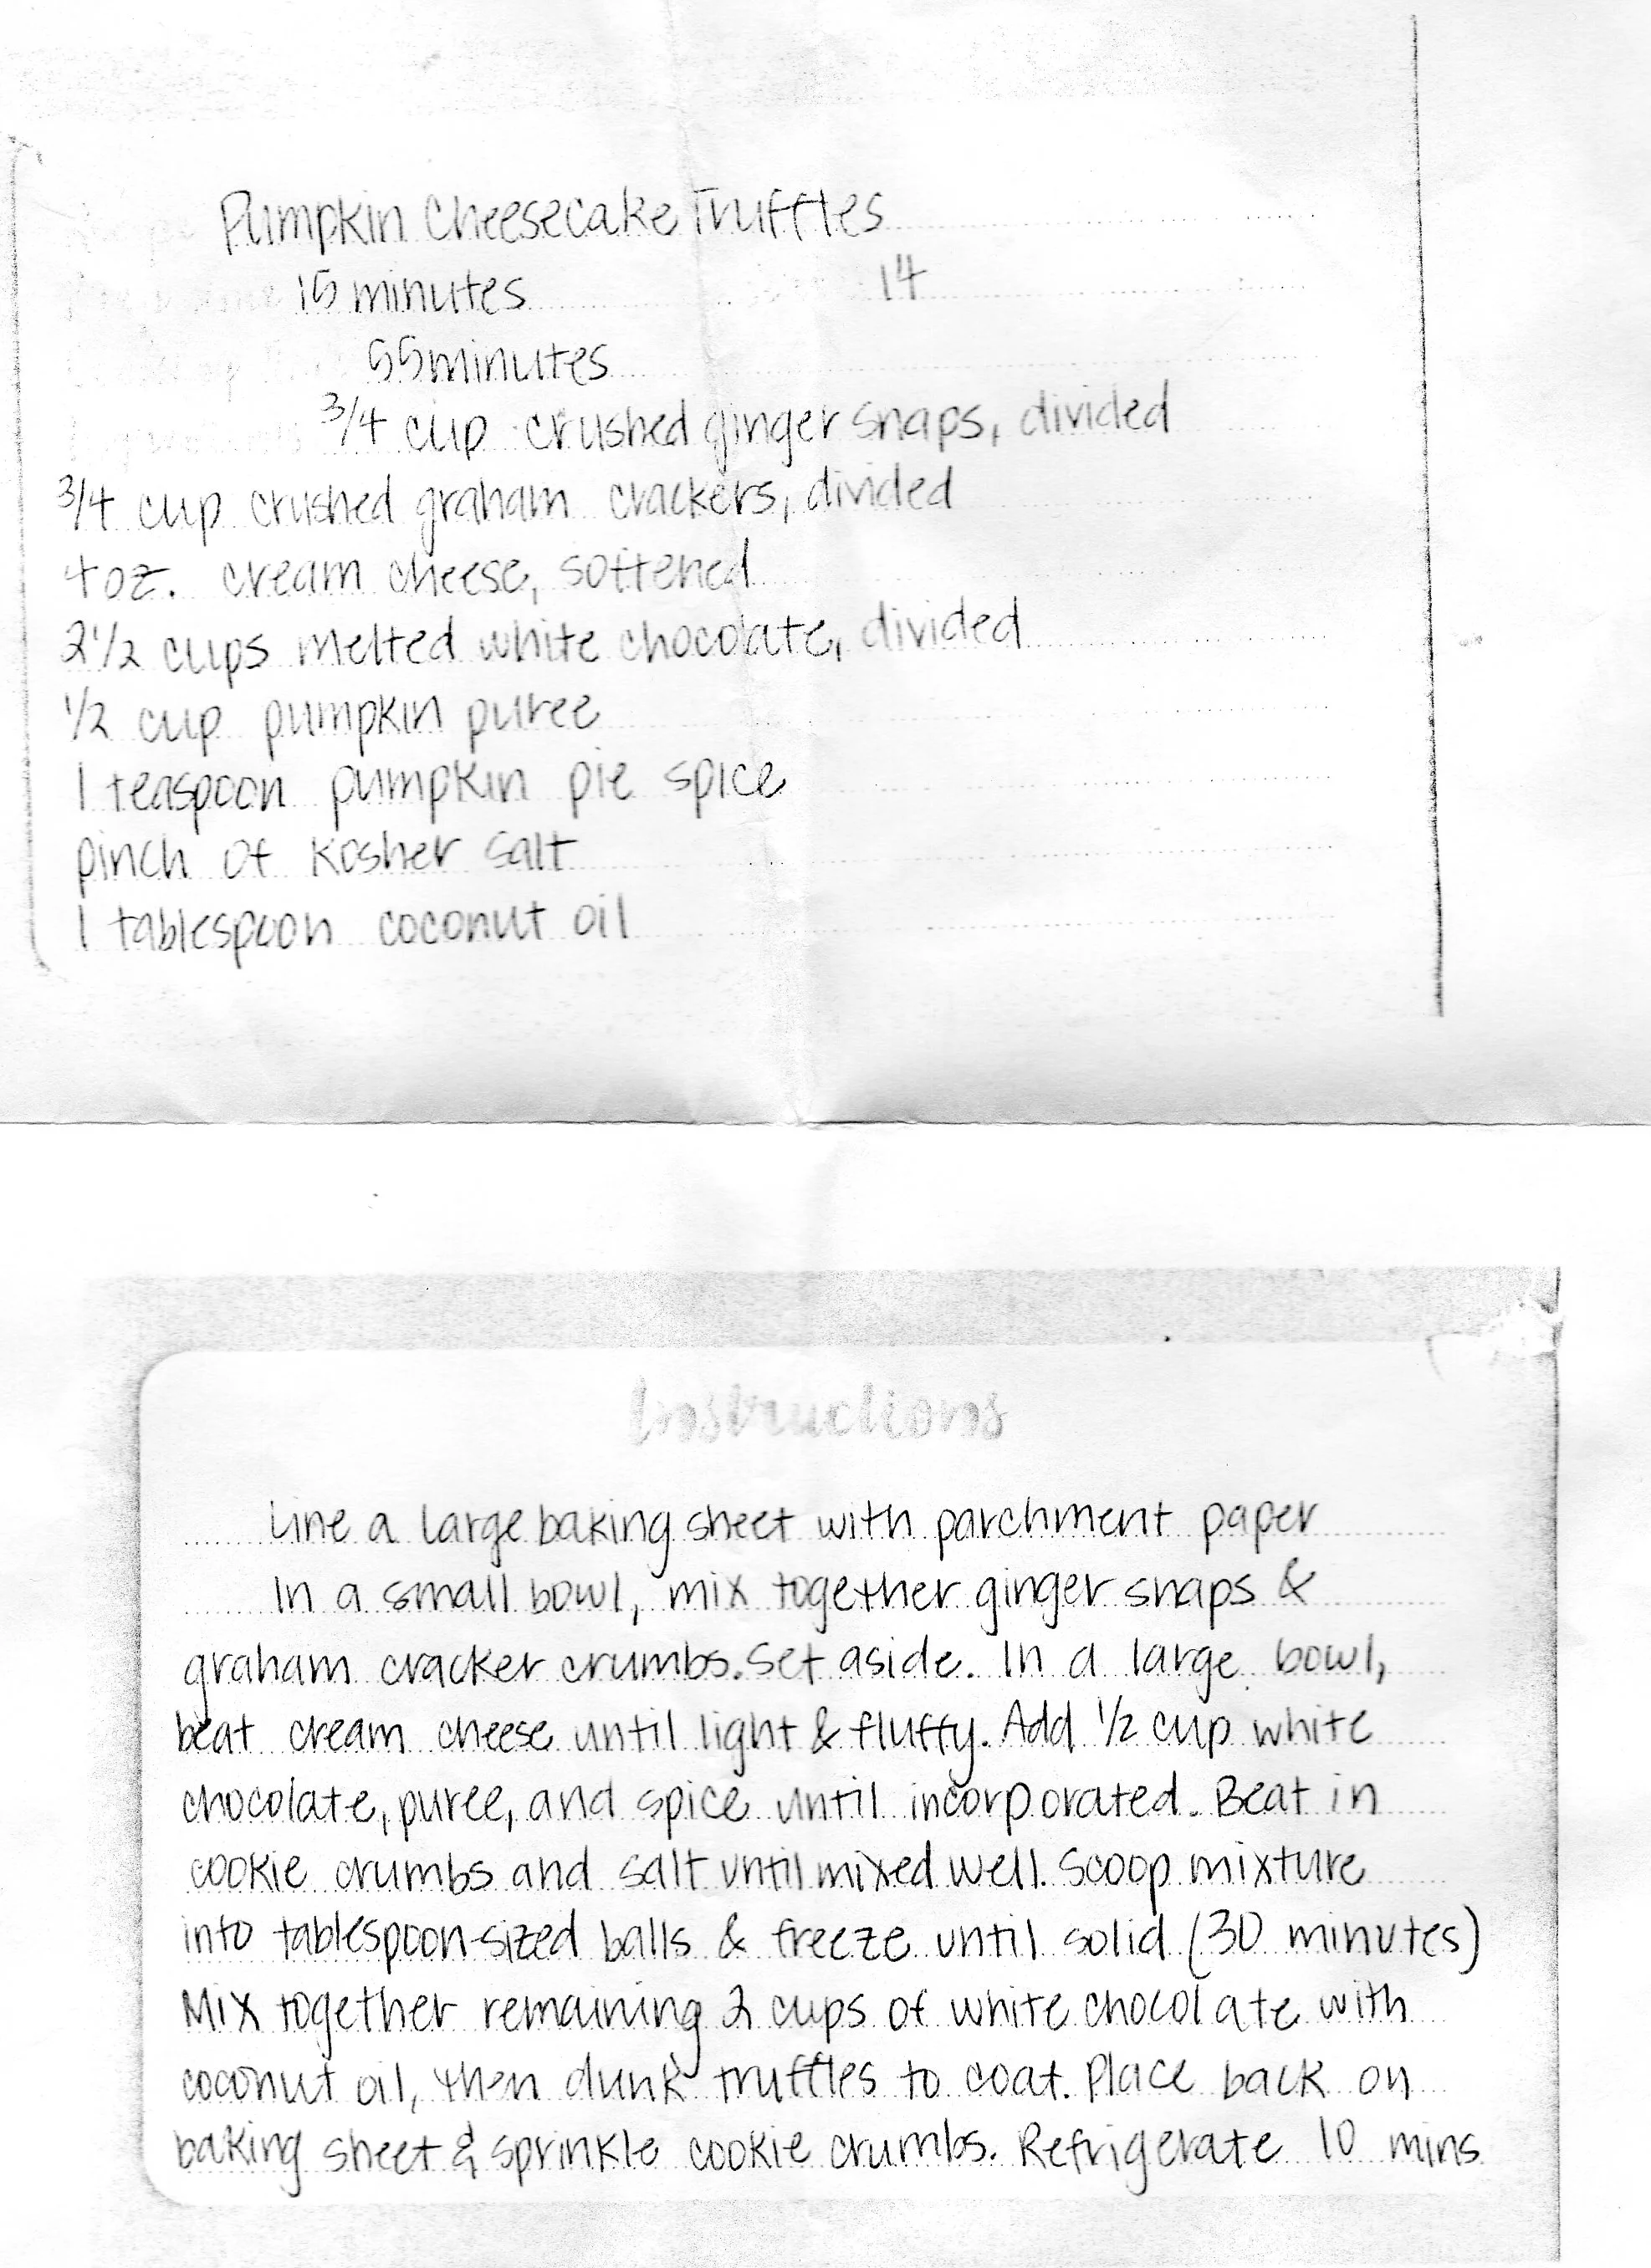 Pumpkin Cheesecake Truffles
15 minutes 14
55 minutes
3/4 cup crushed ginger snaps, divided
3/4 cup crushed graham crackers, divided
4 oz. cream cheese, softened
2 1/2 cups melted white chocolate, divided
1/2 cup pumpkin puree
1 teaspoon pumpkin pie spice
pinch of kosher salt
1 tablespoon coconut oil
Instructions
Line a large baking sheet with parchment paper
In a small bowl, mix together ginger snaps &
graham cracker crumbs. Set aside. In a large bowl,
beat cream cheese until light & fluffy. Add 1/2 cup white
chocolate, puree, and spice until incorporated. Beat in
cookie crumbs and salt until mixed well. Scoop mixture
into tablespoon-sized balls & freeze until solid (30 minutes)
Mix together remaining 2 cups of white chocolate with
coconut oil, then dunk truffles to coat. Place back on
baking sheet & sprinkle cookie crumbs. Refrigerate 10 mins